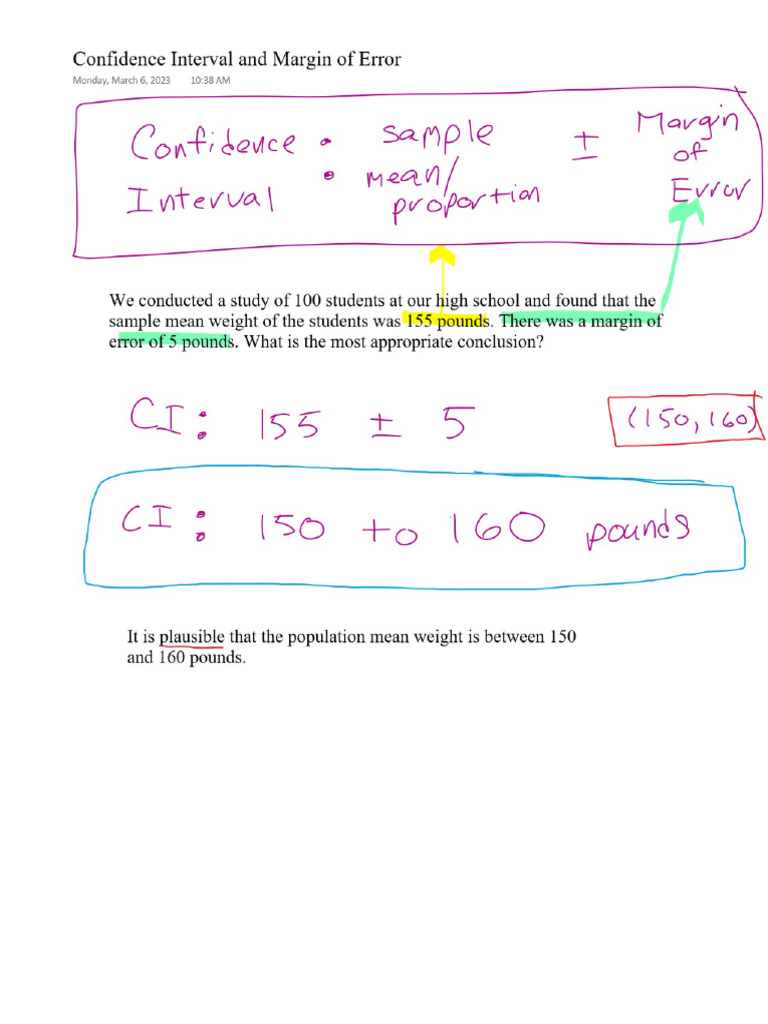 Confidence Interval and Margin of Error
Monday, March 6, 2023 10:38 AM
Confidence : sample ± Margin
Interval mean/ of
proportion Error
We conducted a study of 100 students at our high school and found that the
sample mean weight of the students was 155 pounds. There was a margin of
error of 5 pounds. What is the most appropriate conclusion?
CI: 155 ± 5 (150, 160)
CI: 150 to 160 pounds
It is plausible that the population mean weight is between 150
and 160 pounds.